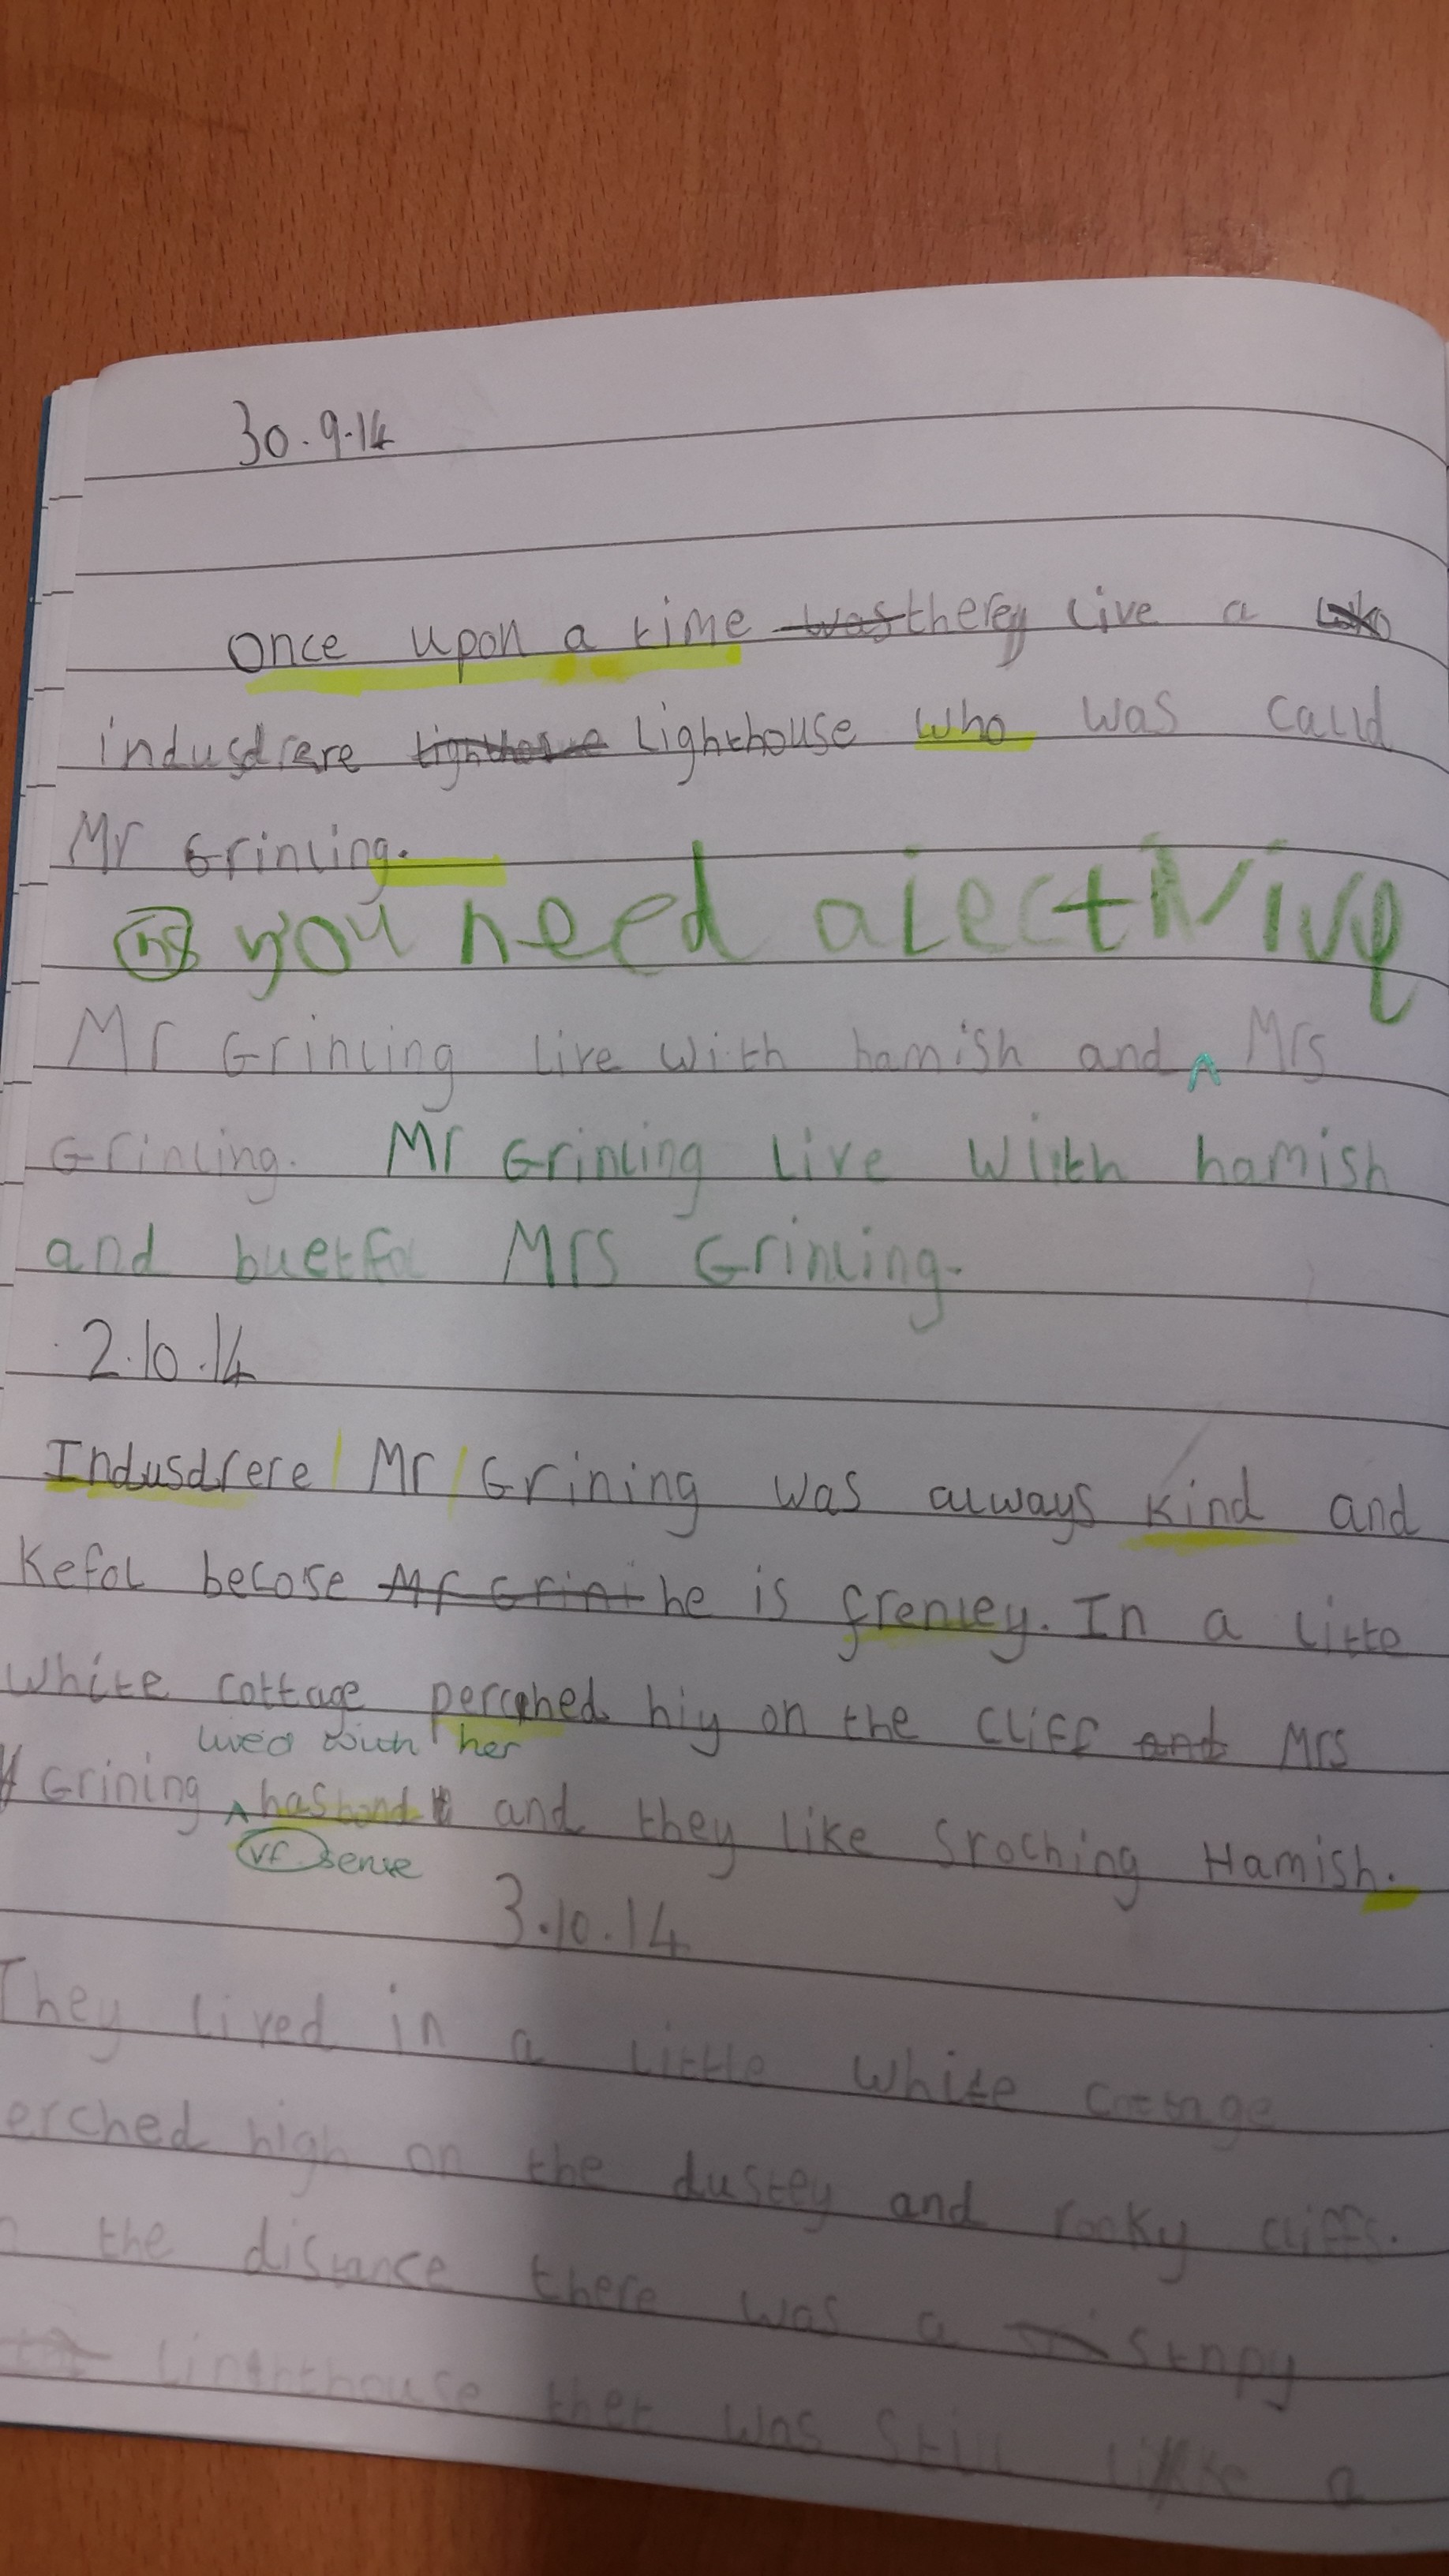 30.9.14
Once upon a time was there live a
indusdrere Lighthouse who was caud
Mr Grinling.
ns you need aject ive
Mr Grinling live with hamish and ^ Mrs
Grinling. Mr Grinling live with hamish
and buetfol Mrs Grinling.
2.10.14
Indusdrere / Mr / Grining was always kind and
Kefol becose Mr Grini he is frenley. In a litte
white cottage perched hiy on the cliff and Mrs
lived with her
Grining ^ hasbond and they like Sroching Hamish.
VF sense
3.10.14
They lived in a little white cottage
erched high on the dustey and rocky cliffs.
the distance there was a
Linthhouse thet was still like a